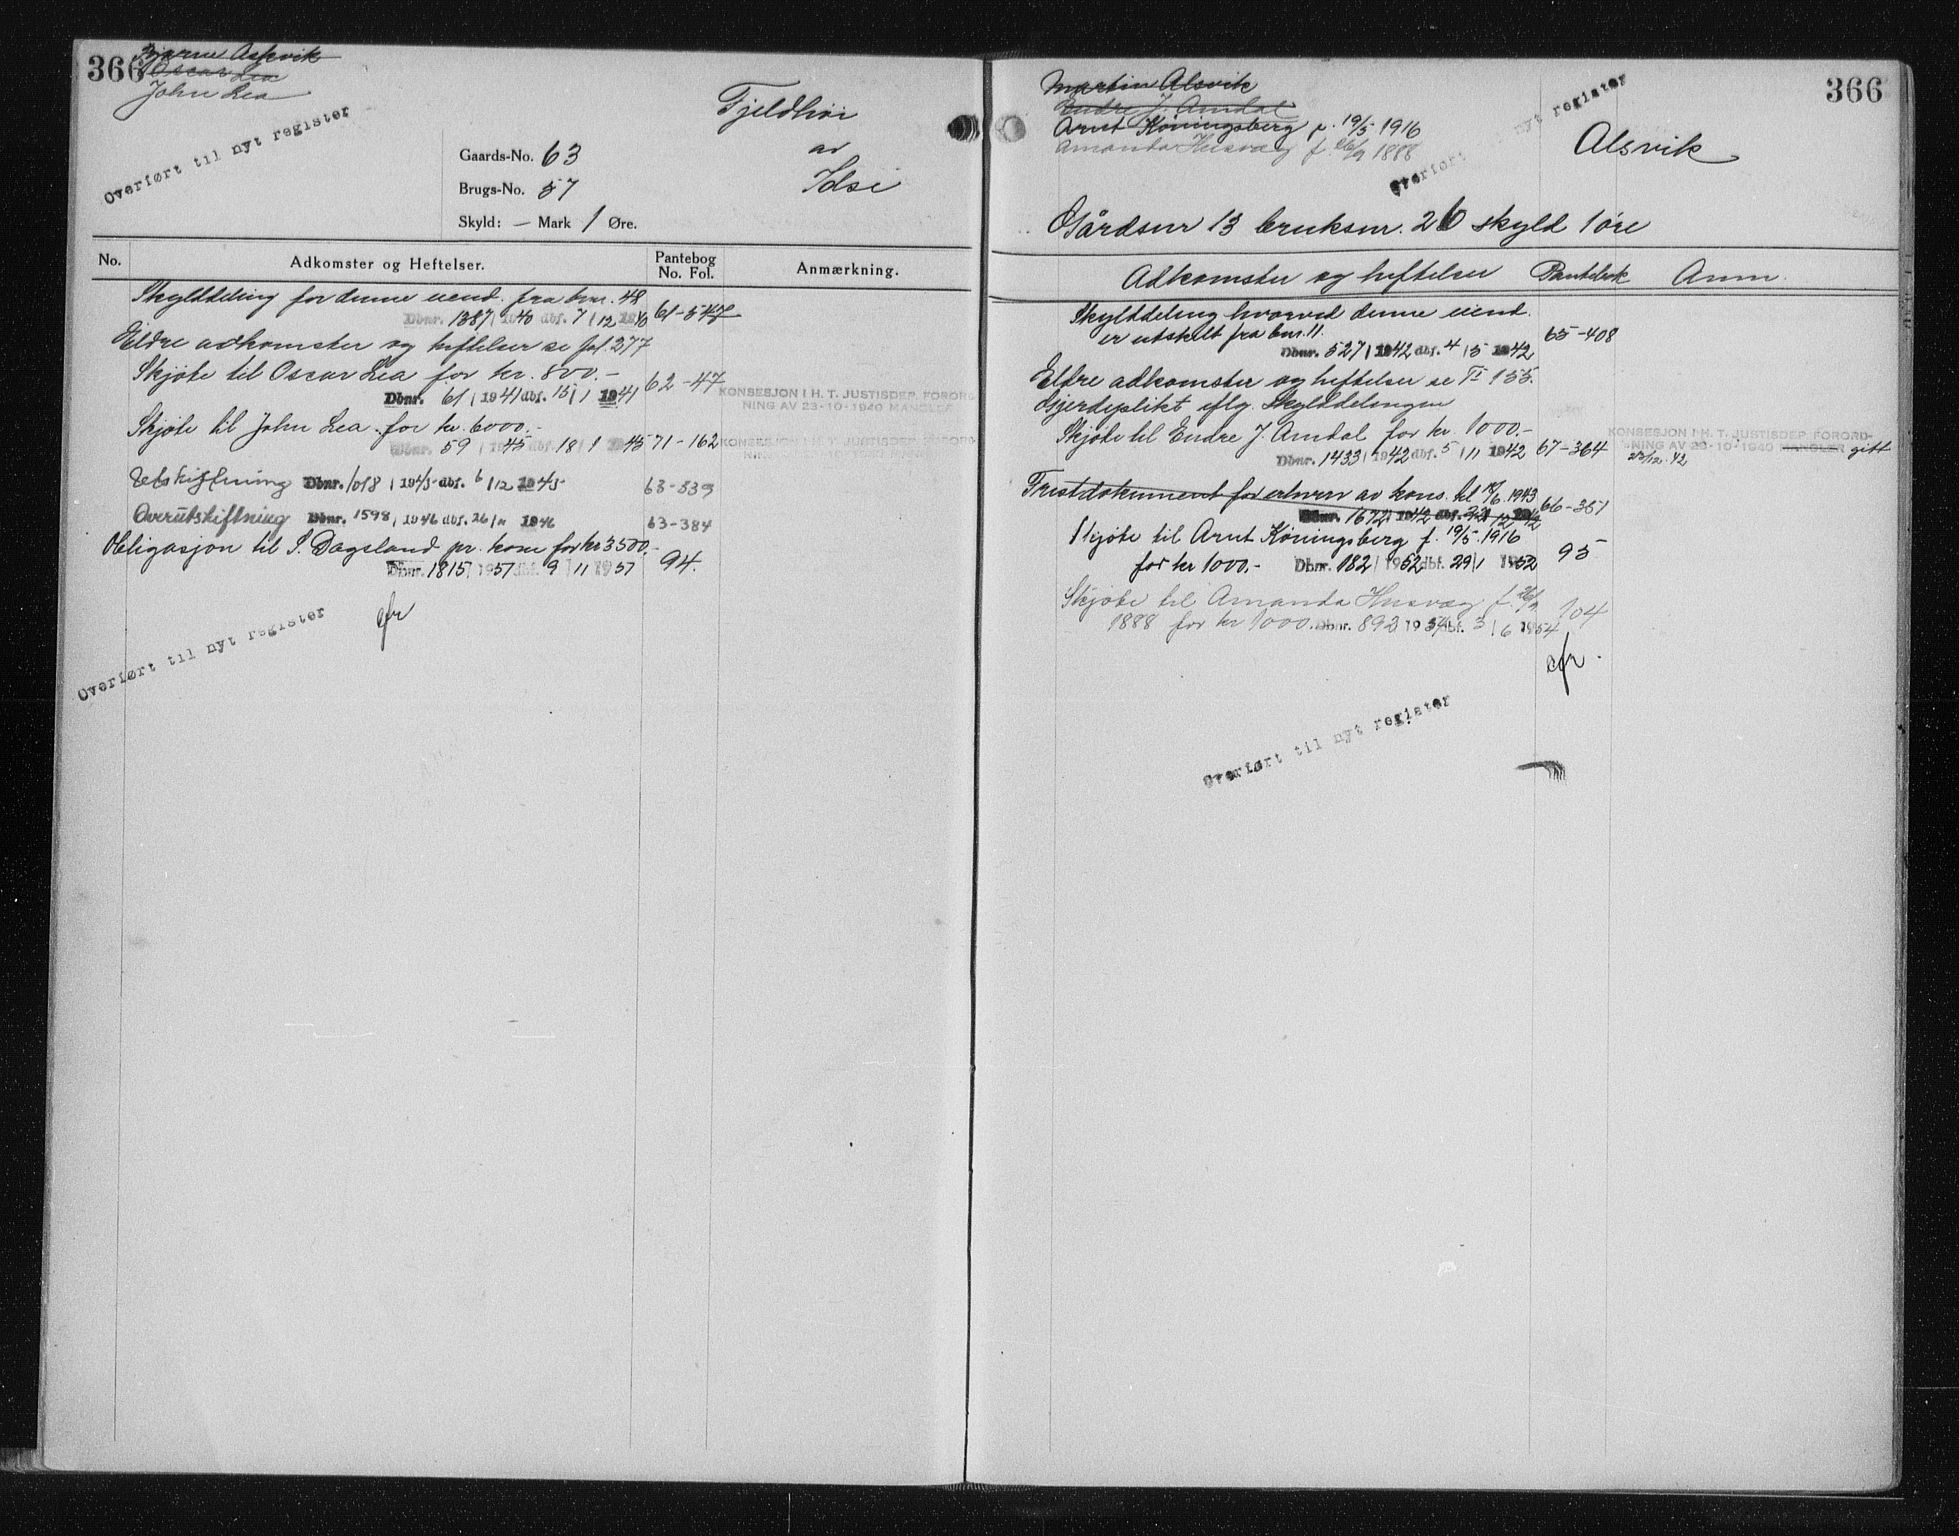 366
Bjarne Askvik
Oscar Lea
John Lea
Overført til nyt register
Fjeldhøi
av
Idsi
Gaards-No. 63
Brugs-No. 57
Skyld: — Mark 1 Øre.
No. Adkomster og Heftelser. Pantebog No. Fol. Anmærkning.
Skylddeling for denne eiend. fra bnr. 48
Dbnr. 1387 / 1940 dbf. 7 / 12 1940 61-547
Eldre adkomster og heftelser se fol. 277
Skjøte til Oscar Lea for kr. 800.-
Dbnr. 61 / 1941 dbf. 15 / 1 1941 62-47
KONSESJON I H. T. JUSTISDEP. FORORD-
NING AV 23-10-1940 MANGLER
Skjøte til John Lea for kr. 6000.-
Dbnr. 59 / 1945 dbf. 18 / 1 1945 71-162
KONSESJON I H. T. JUSTISDEP. FORORD-
Utskiftning Dbnr. 1018 / 1945 dbf. 6 / 12 1945 63-839
Overutskiftning Dbnr. 1598 / 1946 dbf. 26/11 1946 63-384
Obligasjon til P. Dagsland pr. kone for kr 3500.-
Dbnr. 1815 / 1957 dbf. 9 / 11 1957 94.
Overført til nyt register
366
Martin Alsvik
Endre J. Amdal
Arnt Køningsberg f. 19/5 1916
Amanda Husvæg f. 26/9 1888
Overført nyt register
Alsvik
Gårdsnr 13 bruksnr. 26 skyld 1 øre
Adkomster og heftelser Pantebok Anm.
Skylddeling hvorved denne eiend.
er utskilt fra bnr. 11.
Dbnr. 527 / 1942 dbf. 4 / 5 1942 65-408
Eldre adkomster og heftelser se II 155.
Gjerdeplikt iflg. skylddelingen
Skjøte til Endre J. Amdal for kr 1000.-
Dbnr. 1433 / 1942 dbf. 5 / 11 1942 67-364
KONSESJON I H. T. JUSTISDEP. FORORD-
NING AV 23-10-1940 MANGLER gitt
Fristdokument for erhverv av kons. til 1943
Dbnr. 1672 / 1942 dbf. 12 1942 66-351
Skjøte til Arnt Køningsberg f. 19/5 1916
for kr 1000.- Dbnr. 182 / 1952 dbf. 29 / 1 1952 95
Skjøte til Amanda Husvæg f. 26/9
1888 for kr 1000. Dbnr. 892 1954 dbf. 3 / 6 1954 104
Overført til nyt register